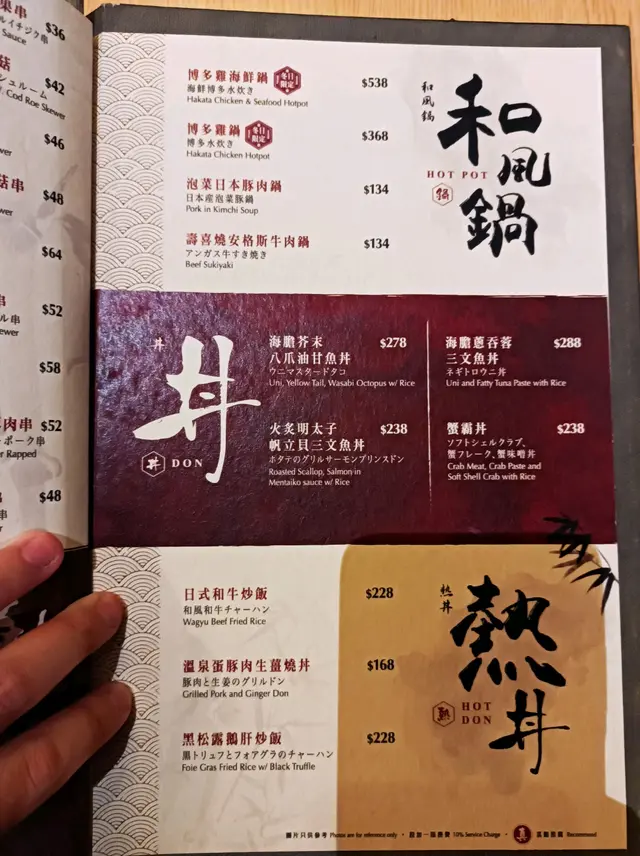 果串
$36
ルイチジク串
Sauce
菇
$42
シュルーム
Cod Roe Skewer
$46
wer
菇串
$48
wer
$64
串
$52
ル串
ewer
$58
肉串
$52
ーポーク串
er Rapped
$48
串
博多雞海鮮鍋
冬日限定
$538
海鮮博多水炊き
Hakata Chicken & Seafood Hotpot
博多雞鍋
冬日限定
$368
博多水炊き
Hakata Chicken Hotpot
泡菜日本豚肉鍋
$134
日本産泡菜豚鍋
Pork in Kimchi Soup
壽喜燒安格斯牛肉鍋
$134
アンガス牛すき焼き
Beef Sukiyaki
和風鍋
和風鍋
HOT POT
鍋
丼
丼
丼
DON
海膽芥末
$278
八爪油甘魚丼
ウニマスタードタコ
Uni, Yellow Tail, Wasabi Octopus w/ Rice
火炙明太子
$238
帆立貝三文魚丼
ホタテのグリルサーモンプリンスドン
Roasted Scallop, Salmon in
Mentaiko sauce w/ Rice
海膽蔥吞蓉
$288
三文魚丼
ネギトロウニ丼
Uni and Fatty Tuna Paste with Rice
蟹霸丼
$238
ソフトシェルクラブ、
蟹フレーク、蟹味噌丼
Crab Meat, Crab Paste and
Soft Shell Crab with Rice
日式和牛炒飯
$228
和風和牛チャーハン
Wagyu Beef Fried Rice
溫泉蛋豚肉生薑燒丼
$168
豚肉と生姜のグリルドン
Grilled Pork and Ginger Don
黑松露鵝肝炒飯
$228
黒トリュフとフォアグラのチャーハン
Foie Gras Fried Rice w/ Black Truffle
熱丼
熱丼
HOT
DON
熱
圖片只供參考 Photos are for reference only • 設加一服務費 10% Service Charge • 真 Recommened